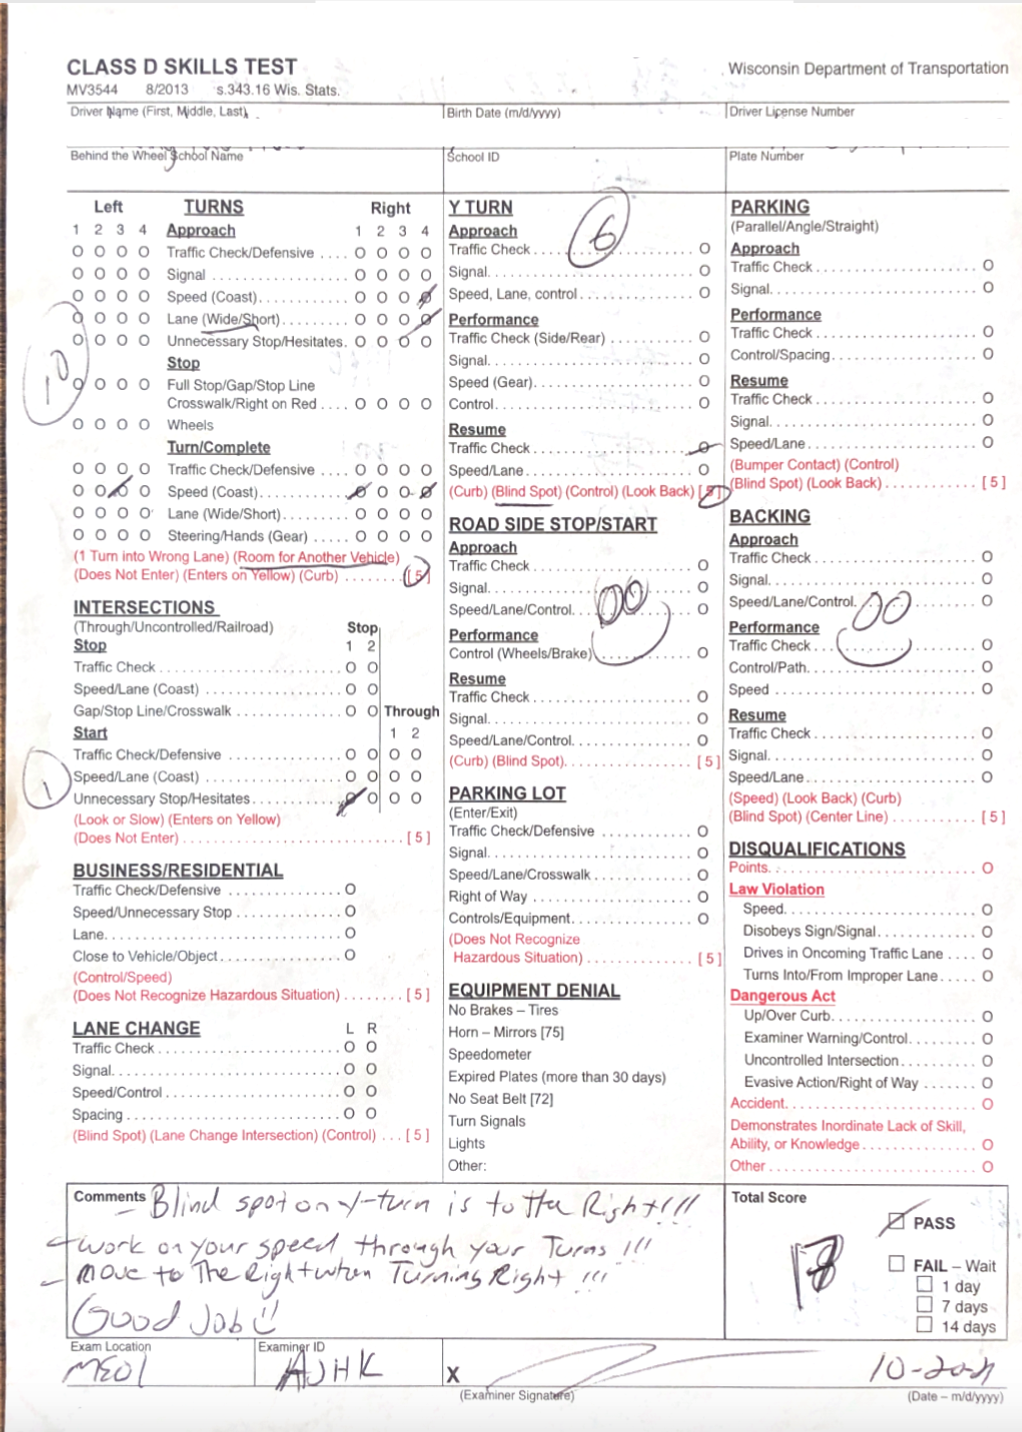 CLASS D SKILLS TEST
MV3544 8/2013 s.343.16 Wis. Stats.
Wisconsin Department of Transportation
Driver Name (First, Middle, Last)
Birth Date (m/d/yyyy)
Driver License Number
Behind the Wheel School Name
School ID
Plate Number
Left TURNS Right
1 2 3 4 Approach 1 2 3 4
O O O O Traffic Check/Defensive .... O O O O
O O O O Signal .... O O O O
O O O O Speed (Coast) .... O O O O
O O O O Lane (Wide/Short) .... O O O O
O O O O Unnecessary Stop/Hesitates. O O O O
10
Stop
O O O O Full Stop/Gap/Stop Line
Crosswalk/Right on Red .... O O O O
O O O O Wheels
Turn/Complete
O O O O Traffic Check/Defensive .... O O O O
O O O O Speed (Coast) .... O O O O
O O O O Lane (Wide/Short) .... O O O O
O O O O Steering/Hands (Gear) .... O O O O
(1 Turn into Wrong Lane) (Room for Another Vehicle)
(Does Not Enter) (Enters on Yellow) (Curb) .... [5]
INTERSECTIONS
(Through/Uncontrolled/Railroad) Stop
Stop 1 2
Traffic Check .... O O
Speed/Lane (Coast) .... O O
Gap/Stop Line/Crosswalk .... O O Through
Start 1 2
Traffic Check/Defensive .... O O O O
Speed/Lane (Coast) .... O O O O
1
Unnecessary Stop/Hesitates .... O O O O
(Look or Slow) (Enters on Yellow)
(Does Not Enter) .... [5]
BUSINESS/RESIDENTIAL
Traffic Check/Defensive .... O
Speed/Unnecessary Stop .... O
Lane .... O
Close to Vehicle/Object .... O
(Control/Speed)
(Does Not Recognize Hazardous Situation) .... [5]
LANE CHANGE L R
Traffic Check .... O O
Signal .... O O
Speed/Control .... O O
Spacing .... O O
(Blind Spot) (Lane Change Intersection) (Control) ... [5]
Y TURN
6
Approach
Traffic Check .... O
Signal .... O
Speed, Lane, control .... O
Performance
Traffic Check (Side/Rear) .... O
Signal .... O
Speed (Gear) .... O
Control .... O
Resume
Traffic Check .... O
Speed/Lane .... O
(Curb) (Blind Spot) (Control) (Look Back) [5]
ROAD SIDE STOP/START
Approach
Traffic Check .... O
Signal .... O
Speed/Lane/Control .... O
00
Performance
Control (Wheels/Brake) .... O
Resume
Traffic Check .... O
Signal .... O
Speed/Lane/Control .... O
(Curb) (Blind Spot) .... [5]
PARKING LOT
(Enter/Exit)
Traffic Check/Defensive .... O
Signal .... O
Speed/Lane/Crosswalk .... O
Right of Way .... O
Controls/Equipment .... O
(Does Not Recognize
Hazardous Situation) .... [5]
EQUIPMENT DENIAL
No Brakes – Tires
Horn – Mirrors [75]
Speedometer
Expired Plates (more than 30 days)
No Seat Belt [72]
Turn Signals
Lights
Other:
PARKING
(Parallel/Angle/Straight)
Approach
Traffic Check .... O
Signal .... O
Performance
Traffic Check .... O
Control/Spacing .... O
Resume
Traffic Check .... O
Signal .... O
Speed/Lane .... O
(Bumper Contact) (Control)
(Blind Spot) (Look Back) .... [5]
BACKING
Approach
Traffic Check .... O
Signal .... O
Speed/Lane/Control .... O
00
Performance
Traffic Check .... O
Control/Path .... O
Speed .... O
Resume
Traffic Check .... O
Signal .... O
Speed/Lane .... O
(Speed) (Look Back) (Curb)
(Blind Spot) (Center Line) .... [5]
DISQUALIFICATIONS
Points .... O
Law Violation
Speed .... O
Disobeys Sign/Signal .... O
Drives in Oncoming Traffic Lane .... O
Turns Into/From Improper Lane .... O
Dangerous Act
Up/Over Curb .... O
Examiner Warning/Control .... O
Uncontrolled Intersection .... O
Evasive Action/Right of Way .... O
Accident .... O
Demonstrates Inordinate Lack of Skill,
Ability, or Knowledge .... O
Other .... O
Comments
– Blind spot on y-turn is to the Right!!!
– work on your speed through your Turns !!!
– Move to The Right when Turning Right !!!
Good Job
Total Score
18
PASS
FAIL – Wait
1 day
7 days
14 days
Exam Location
Examiner ID
AJHK
X
(Examiner Signature)
(Date – m/d/yyyy)